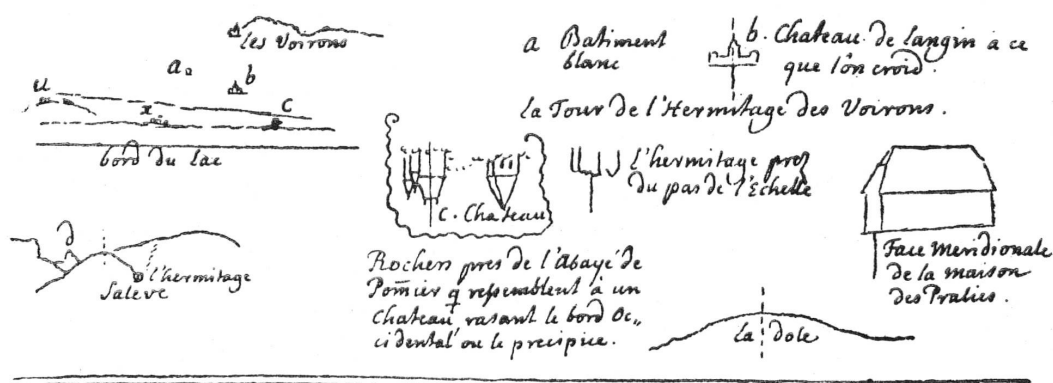 les Voirons
a
b
u
x
c
bord du lac
a Batiment
blanc
b. Chateau de langin à ce
que l'on croid.
la Tour de l'Hermitage des Voirons.
C. Chateau
l'hermitage prez
du pas de l'Echelle
d
l'hermitage
Saleve
Rochers pres de l'Abayé de
Pom̃ier q ressemblent à un
Chateau, rasant le bord Oc„
cidental ou le precipice.
Face Meridionale
de la maison
des Pralies.
la dole